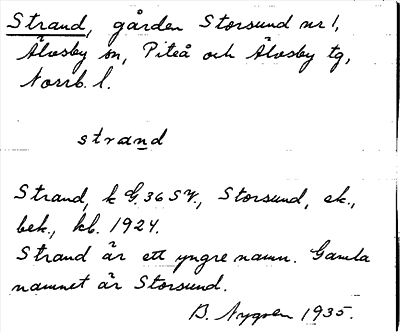 Strand, gården Storsund nr 1,
Älvsby sn, Piteå och Älvsby tg,
Norrb. l.
strand
Strand, k G. 36 SV, Storsund, ek.,
bek., kb. 1924.
Strand är ett yngre namn. Gamla
namnet är Storsund.
B. Nygren 1935.